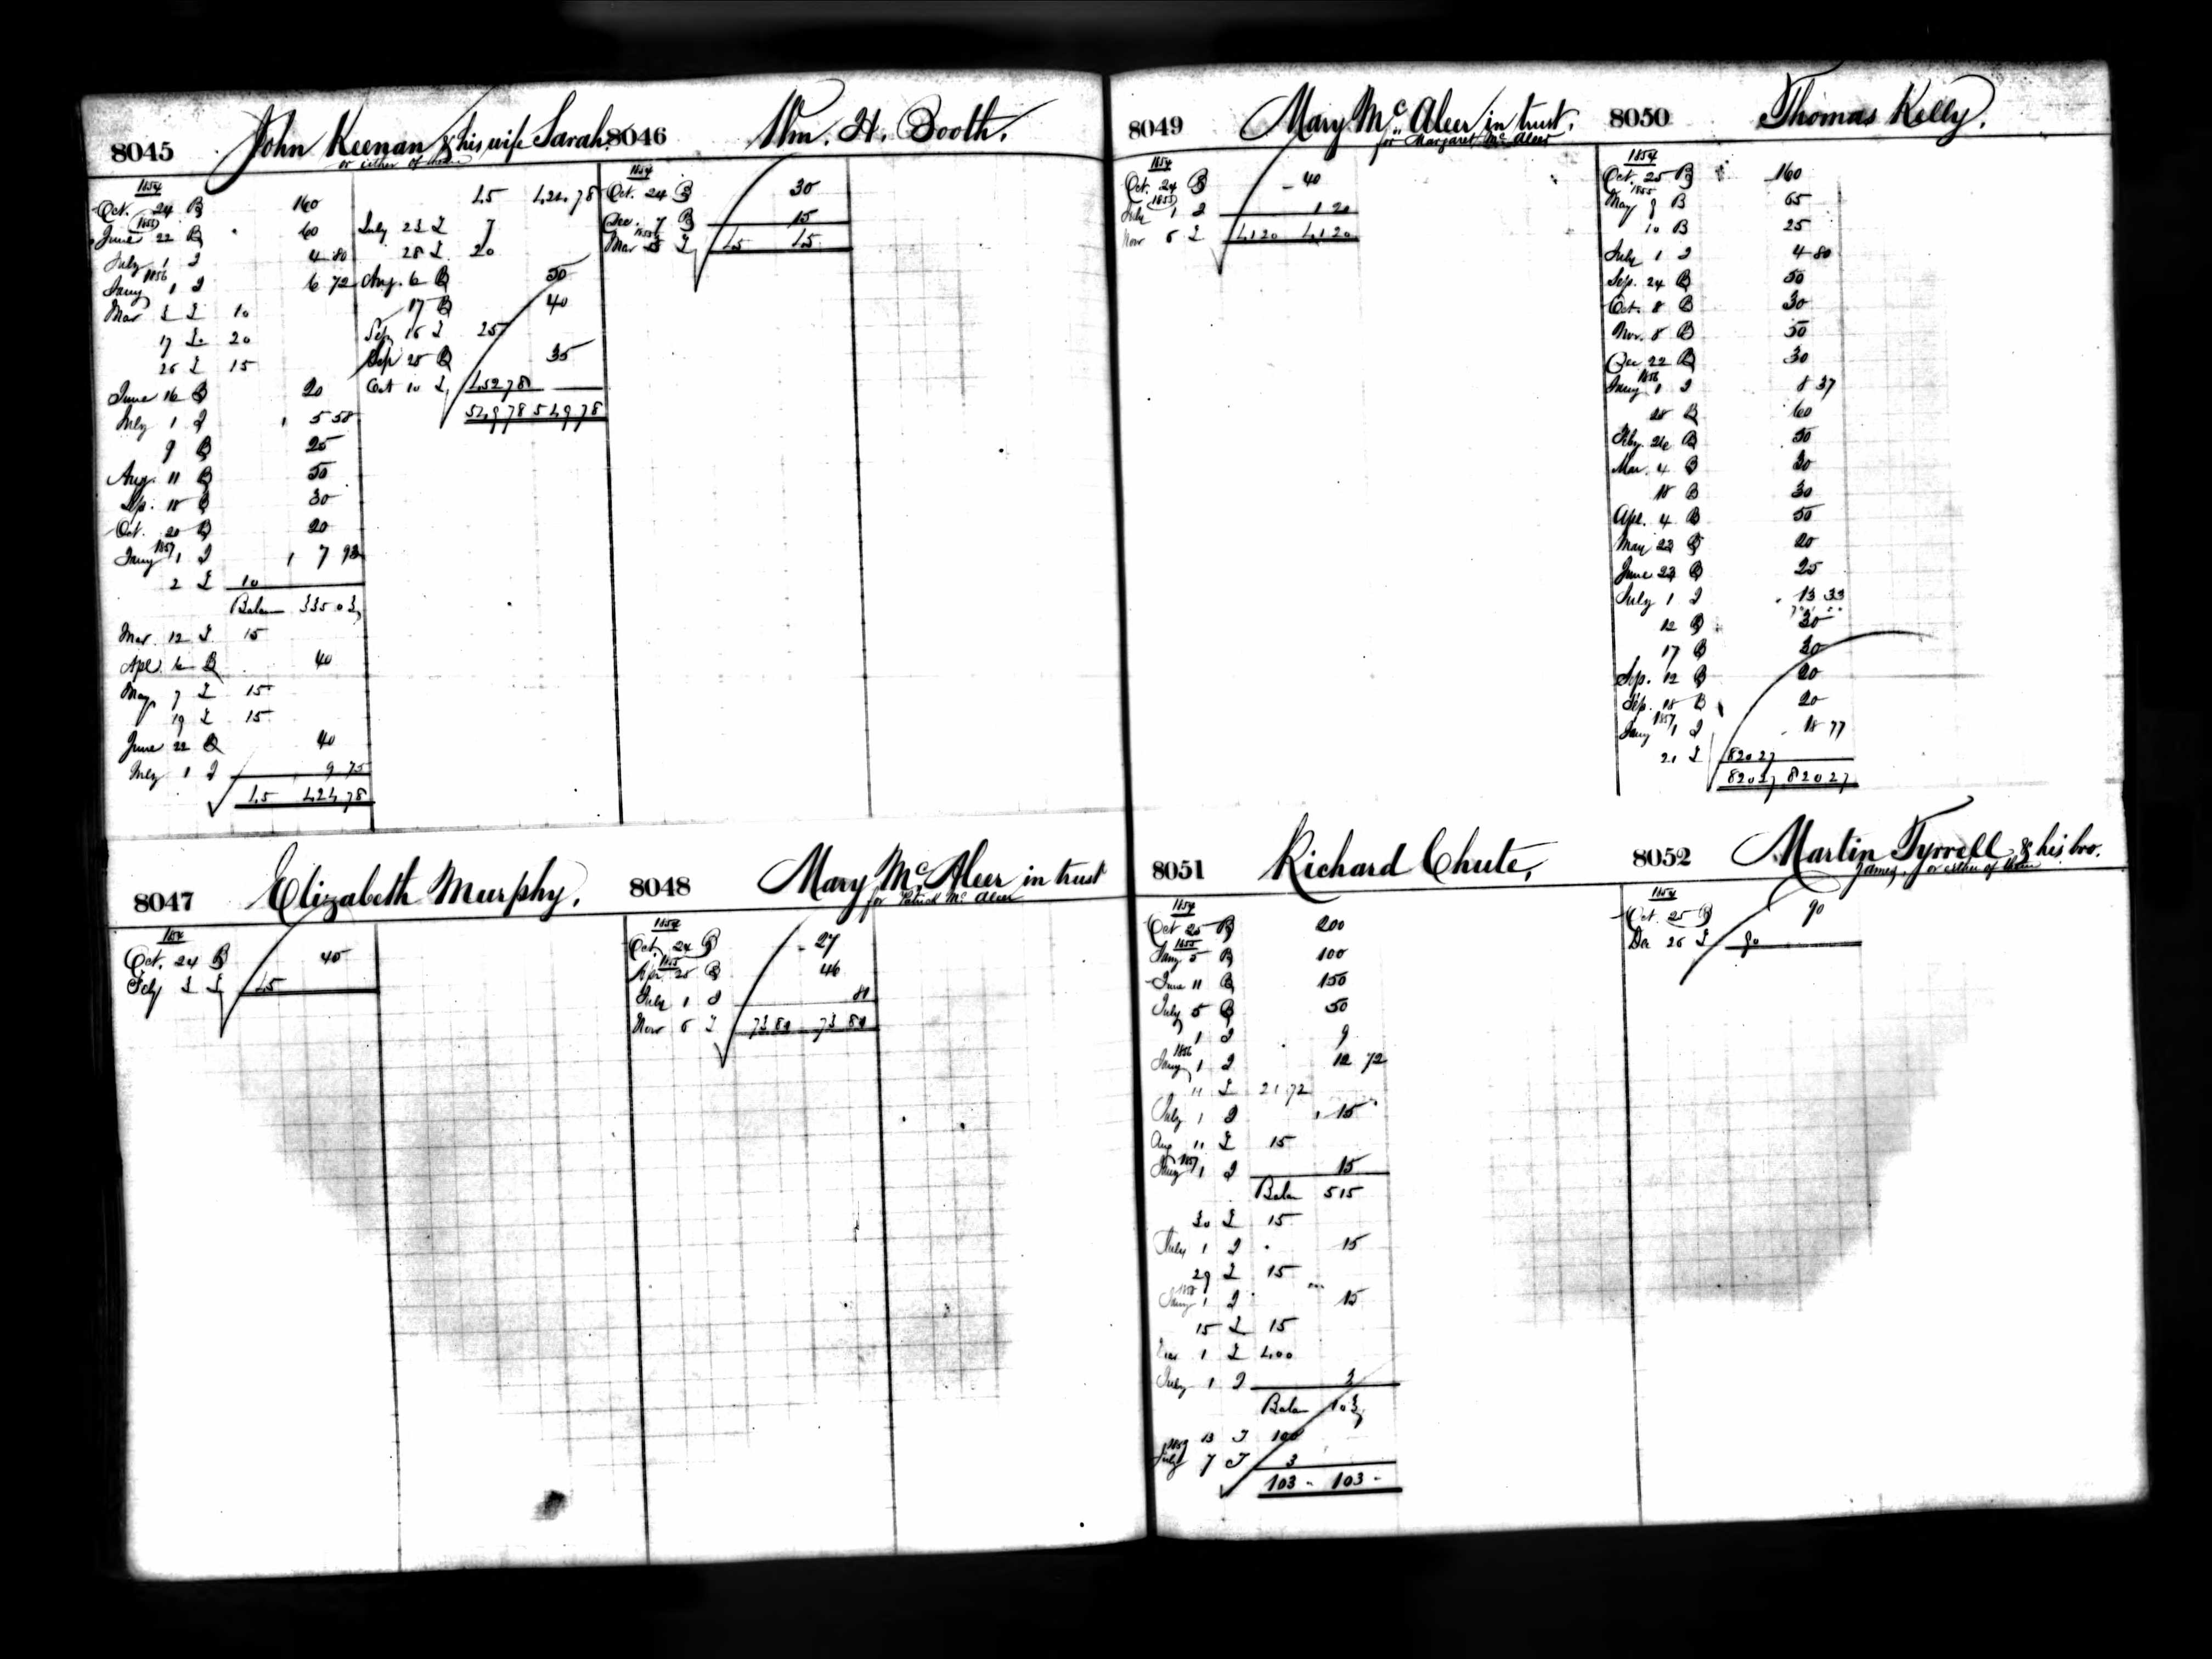 8045 John Keenan & his wife Sarah
or either of them
1854
Oct. 24 B 160
1855
June 22 B 60
July 1 I 4 80
1856
Jany 1 I 6 72
Mar 3 L 10
17 L 20
26 L 15
June 16 B 20
July 1 I 5 58
9 B 25
Aug. 11 B 50
Sep. 18 B 30
Oct. 20 B 20
1857
Jany 1 I 7 93
2 L 10
Balan 335 03
Mar. 12 L 15
Apl. 6 B 40
May 7 L 15
19 L 15
June 22 B 40
July 1 I 9 75
45 424 78
45 424 78
July 23 L 7
28 L 20
Aug. 6 B 50
17 B 40
Sep 16 L 25
Sep 25 B 35
Oct 10 L 452 78
549 78 549 78
8046 Wm. H. Booth.
1854
Oct. 24 B 30
Dec. 7 B 15
1855
Mar L 45 45
8047 Elizabeth Murphy.
1854
Oct. 24 B 45
Feby 3 L 45
8048 Mary McAleer in trust
for Patrick McAleer
1854
Oct. 24 B 27
1855
Apr. 25 B 46
July 1 I 81
Nov 6 L 73 81 73 81
8049 Mary McAleer in trust.
for Margaret McAleer
1854
Oct. 24 B 40
1855
July 1 I 1 20
Nov 6 L 41 20 41 20
8050 Thomas Kelly.
1854
Oct. 25 B 160
1855
May 9 B 65
10 B 25
July 1 I 4 80
Sep. 24 B 50
Oct. 8 B 30
Nov. 8 B 50
Dec 22 B 30
1856
Jany 1 I 8 37
28 B 60
Feby. 26 B 50
Mar. 4 B 30
18 B 30
Apl. 4 B 50
May 23 B 20
June 23 B 25
July 1 I 13 33
12 B 30
17 B 30
Sep. 12 B 20
Sep. 18 B 20
1857
Jany 1 I 18 77
21 L 820 27
820 27 820 27
8051 Richard Chute.
1854
Oct 25 B 200
1855
Jany. 5 B 100
June 11 B 150
July 5 B 50
1 I 9
1856
Jany 1 I 12 72
11 L 21 72
July 1 I 15
Aug 11 L 15
1857
Jany 1 I 15
Balan 515
30 L 15
July 1 I 15
29 L 15
1858
Jany 1 I 15
15 L 15
1 L 400
July 1 I 3
Balan 103
13 T 100
1859
July 7 T 3
103 - 103 -
8052 Martin Tyrrell & his bro.
James, or either of them
1854
Oct. 25 B 90
Dec 26 L 90